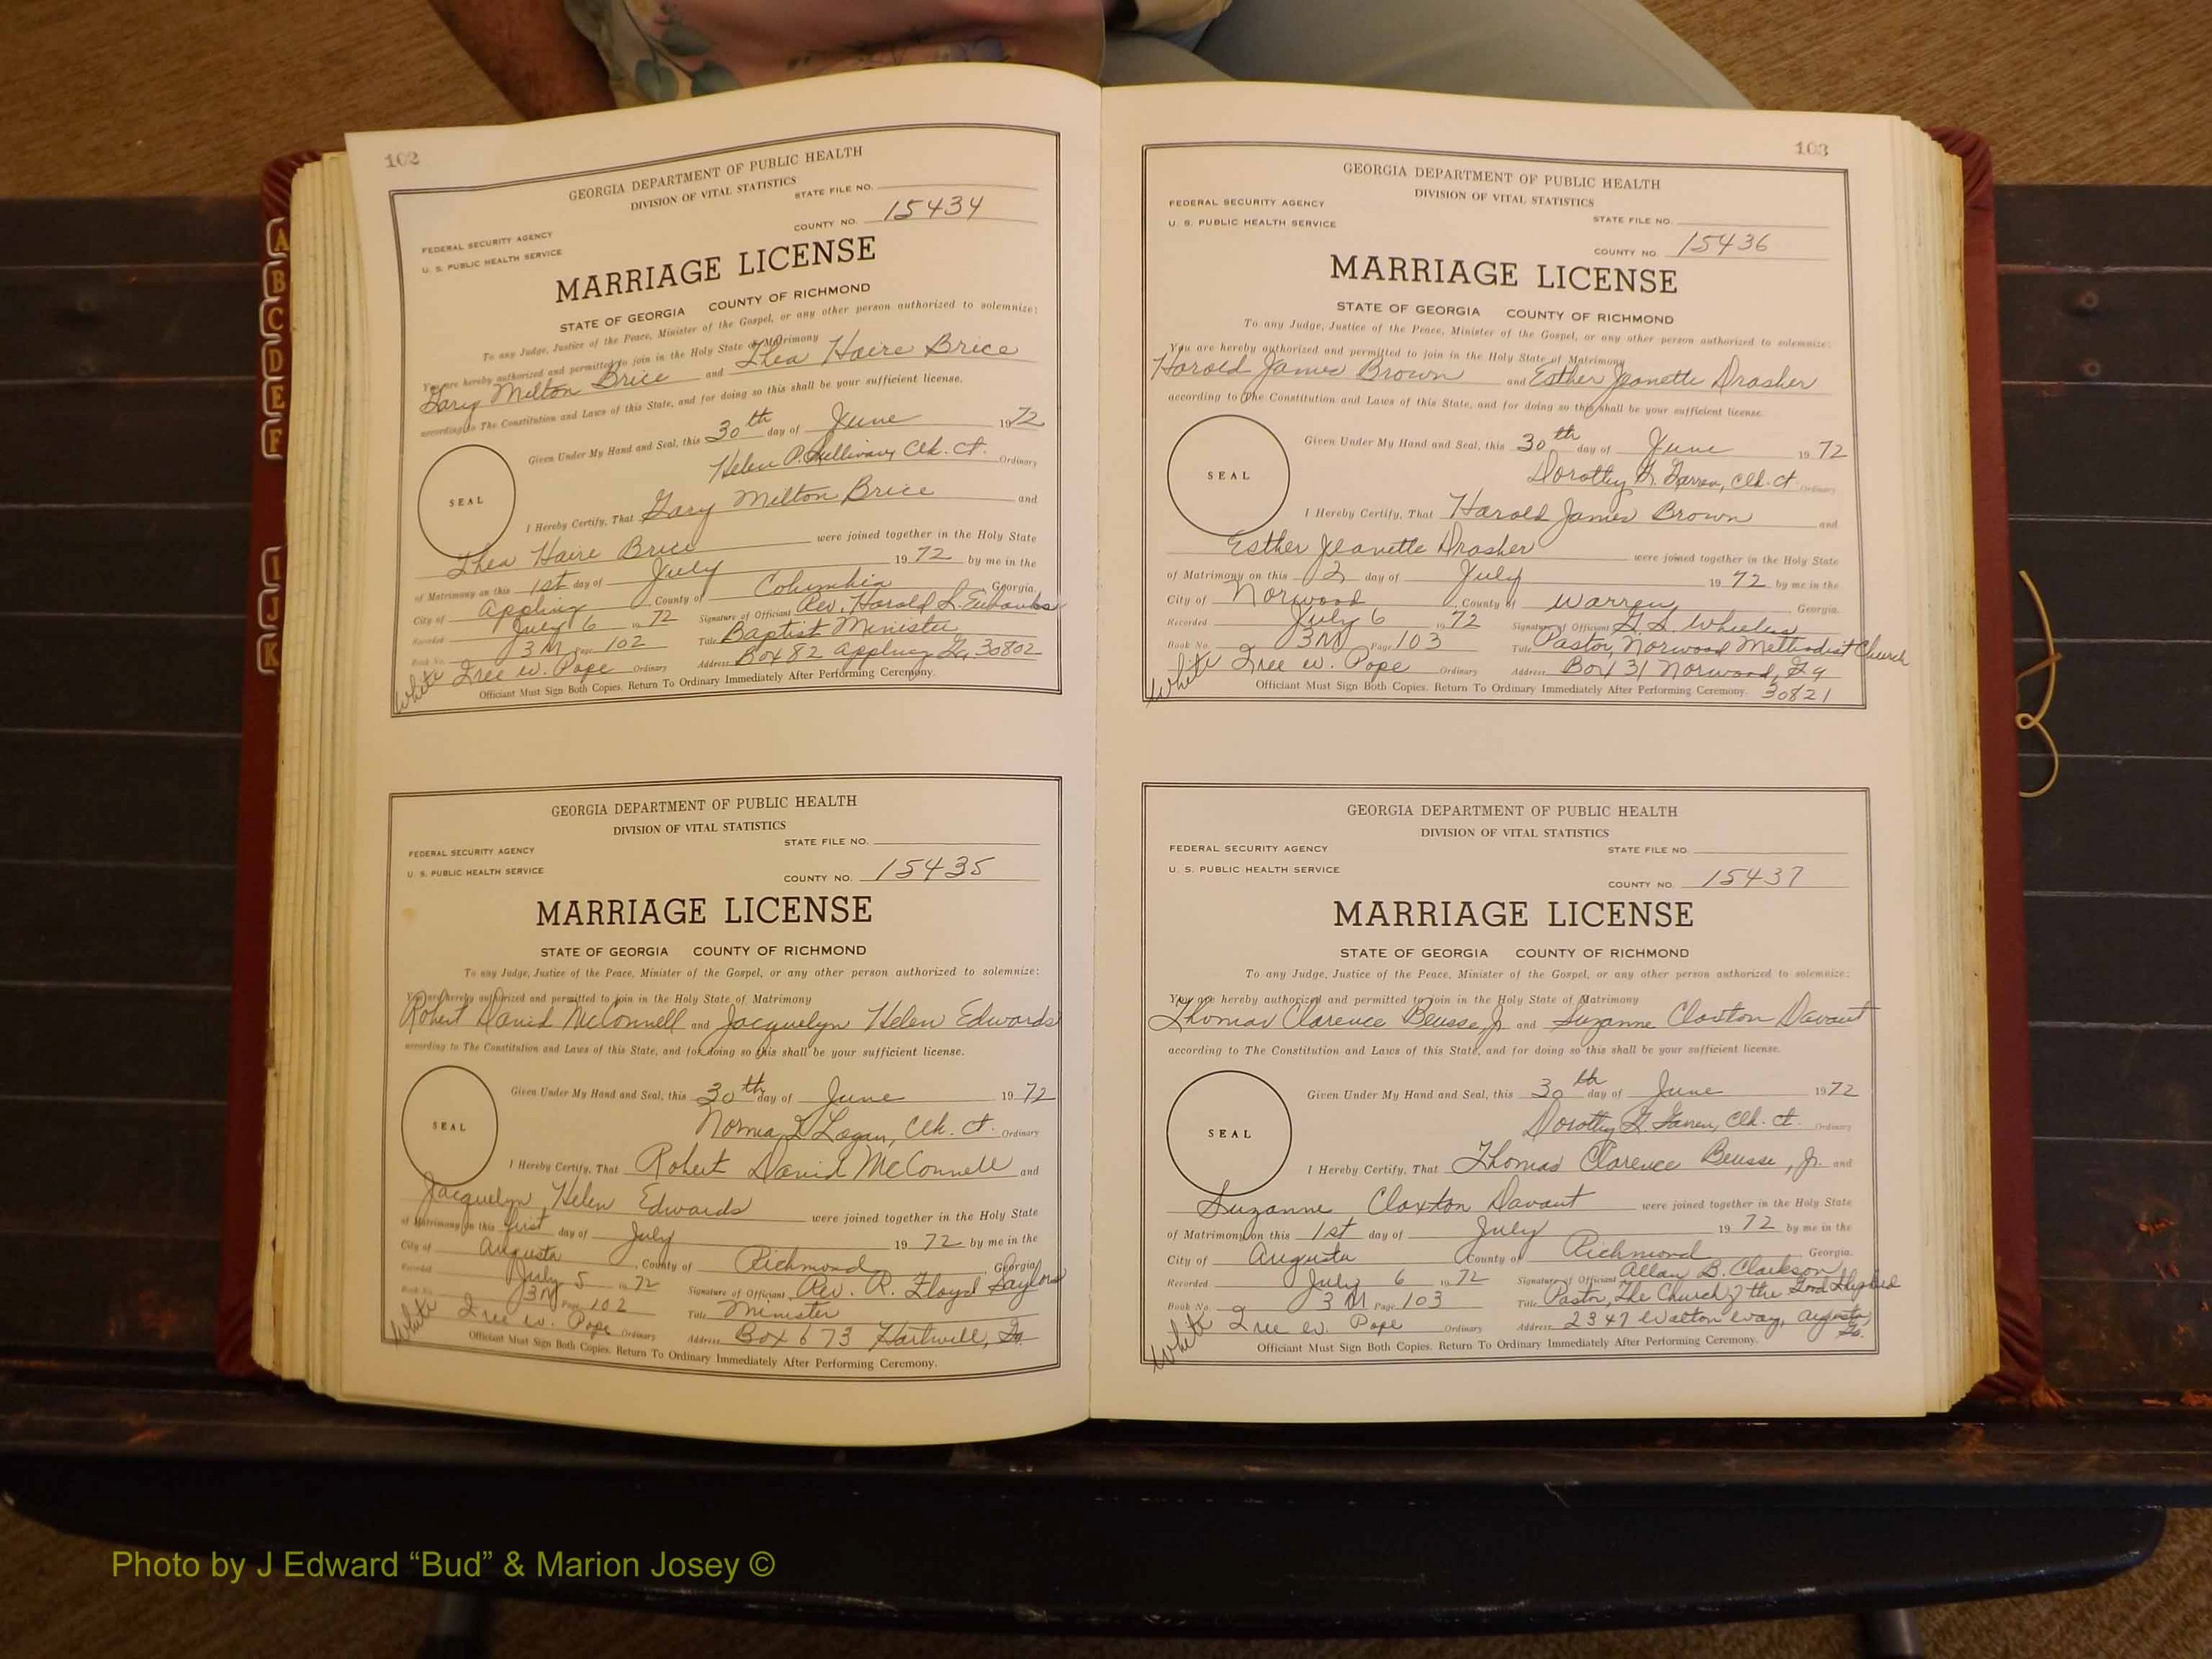 A
B
C
D
E
F
I
J
K
102
GEORGIA DEPARTMENT OF PUBLIC HEALTH
DIVISION OF VITAL STATISTICS
STATE FILE NO.
FEDERAL SECURITY AGENCY
U. S. PUBLIC HEALTH SERVICE
COUNTY NO. 15434
MARRIAGE LICENSE
STATE OF GEORGIA COUNTY OF RICHMOND
To any Judge, Justice of the Peace, Minister of the Gospel, or any other person authorized to solemnize:
You are hereby authorized and permitted to join in the Holy State of Matrimony
Gary Milton Brice and Thea Haire Brice
according to The Constitution and Laws of this State, and for doing so this shall be your sufficient license.
Given Under My Hand and Seal, this 30th day of June 1972
Helen P. Sullivan, Clk. Ct. Ordinary
SEAL
I Hereby Certify, That Gary Milton Brice and
Thea Haire Brice were joined together in the Holy State
of Matrimony on this 1st day of July 1972 by me in the
City of Appling, County of Columbia, Georgia.
Recorded July 6 1972 Signature of Officiant Rev. Harold L. Eubanks
Book No. 3M Page 102 Title Baptist Minister
White Tree W. Pope Ordinary Address Box 82 Appling Ga, 30802
Officiant Must Sign Both Copies. Return To Ordinary Immediately After Performing Ceremony.
GEORGIA DEPARTMENT OF PUBLIC HEALTH
DIVISION OF VITAL STATISTICS
STATE FILE NO.
FEDERAL SECURITY AGENCY
U. S. PUBLIC HEALTH SERVICE
COUNTY NO. 15435
MARRIAGE LICENSE
STATE OF GEORGIA COUNTY OF RICHMOND
To any Judge, Justice of the Peace, Minister of the Gospel, or any other person authorized to solemnize:
You are hereby authorized and permitted to join in the Holy State of Matrimony
Robert David McConnell and Jacquelyn Helen Edwards
according to The Constitution and Laws of this State, and for doing so this shall be your sufficient license.
Given Under My Hand and Seal, this 30th day of June 1972
Norma D Logan, Clk. Ct. Ordinary
SEAL
I Hereby Certify, That Robert David McConnell and
Jacquelyn Helen Edwards were joined together in the Holy State
of Matrimony on this first day of July 1972 by me in the
City of Augusta, County of Richmond, Georgia.
Recorded July 5 1972 Signature of Officiant Rev. R. Floyd Saylors
Book No. 3M Page 102 Title Minister
White Tree W. Pope Ordinary Address Box 673 Hartwell, Ga.
Officiant Must Sign Both Copies. Return To Ordinary Immediately After Performing Ceremony.
103
GEORGIA DEPARTMENT OF PUBLIC HEALTH
DIVISION OF VITAL STATISTICS
FEDERAL SECURITY AGENCY
STATE FILE NO.
U. S. PUBLIC HEALTH SERVICE
COUNTY NO. 15436
MARRIAGE LICENSE
STATE OF GEORGIA COUNTY OF RICHMOND
To any Judge, Justice of the Peace, Minister of the Gospel, or any other person authorized to solemnize:
You are hereby authorized and permitted to join in the Holy State of Matrimony
Harold James Brown and Esther Jeanette Drasher
according to The Constitution and Laws of this State, and for doing so this shall be your sufficient license.
Given Under My Hand and Seal, this 30th day of June 1972
Dorothy G. Clk. Ct Ordinary
SEAL
I Hereby Certify, That Harold James Brown and
Esther Jeanette Drasher were joined together in the Holy State
of Matrimony on this 2 day of July 1972 by me in the
City of Norwood, County of Warren, Georgia.
Recorded July 6 1972 Signature of Officiant G. S. Wheeler
Book No. 3M Page 103 Title Pastor, Norwood Methodist Church
White Tree W. Pope Ordinary Address Box 31 Norwood, Ga
Officiant Must Sign Both Copies. Return To Ordinary Immediately After Performing Ceremony. 30821
GEORGIA DEPARTMENT OF PUBLIC HEALTH
DIVISION OF VITAL STATISTICS
FEDERAL SECURITY AGENCY
STATE FILE NO.
U. S. PUBLIC HEALTH SERVICE
COUNTY NO. 15437
MARRIAGE LICENSE
STATE OF GEORGIA COUNTY OF RICHMOND
To any Judge, Justice of the Peace, Minister of the Gospel, or any other person authorized to solemnize:
You are hereby authorized and permitted to join in the Holy State of Matrimony
Thomas Clarence Beusse, Jr. and Suzanne Claxton Davant
according to The Constitution and Laws of this State, and for doing so this shall be your sufficient license.
Given Under My Hand and Seal, this 30th day of June 1972
Dorothy G. Clk. Ct. Ordinary
SEAL
I Hereby Certify, That Thomas Clarence Beusse, Jr. and
Suzanne Claxton Davant were joined together in the Holy State
of Matrimony on this 1st day of July 1972 by me in the
City of Augusta County of Richmond, Georgia.
Recorded July 6 1972 Signature of Officiant Allan B. Clarkson
Book No. 3M Page 103 Title Pastor, The Church of the Good Shepherd
White Tree W. Pope Ordinary Address 2347 Walton Way, Augusta, Ga.
Officiant Must Sign Both Copies. Return To Ordinary Immediately After Performing Ceremony.
Photo by J Edward “Bud” & Marion Josey ©